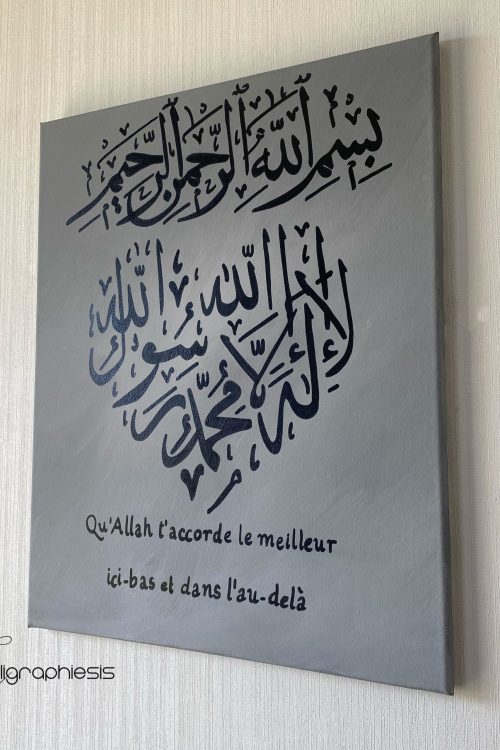 بِسْمِ اللَّهِ الرَّحْمَنِ الرَّحِيمِ
لا إله إلا الله محمد رسول الله
Qu'Allah t'accorde le meilleur
ici-bas et dans l'au-delà
lligraphiesis